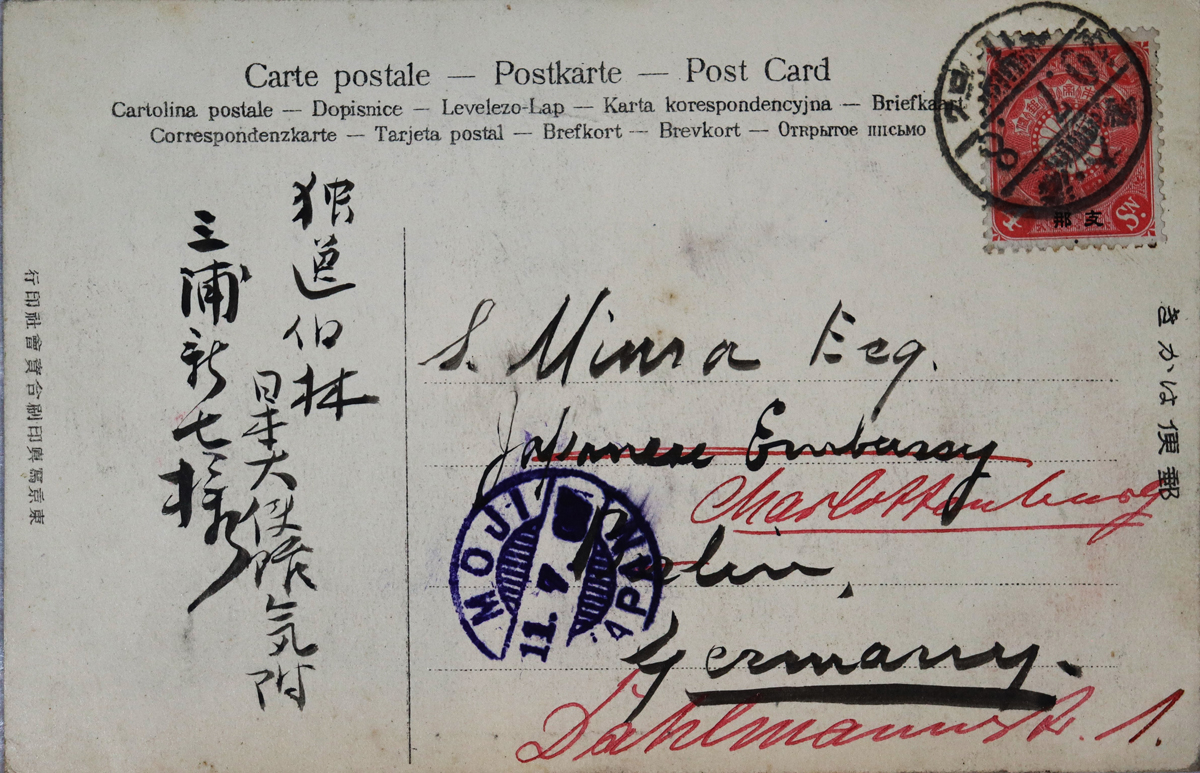 Carte postale — Postkarte — Post Card
Cartolina postale — Dopisnice — Levelezo-Lap — Karta korespondencyjna — Briefkaart
Correspondenzkarte — Tarjeta postal — Brefkort — Brevkort — Открытое письмо
支那
Sn.
きかは便郵
S. Miura Esq.
Japanese Embassy
Charlottenburg
Berlin,
Germany.
Dahlmannstr. 1.
MOJI
11. 4.
JAPAN
伯林
日本大使館気附
三浦新七様
行印社會資合刷印真寫京東